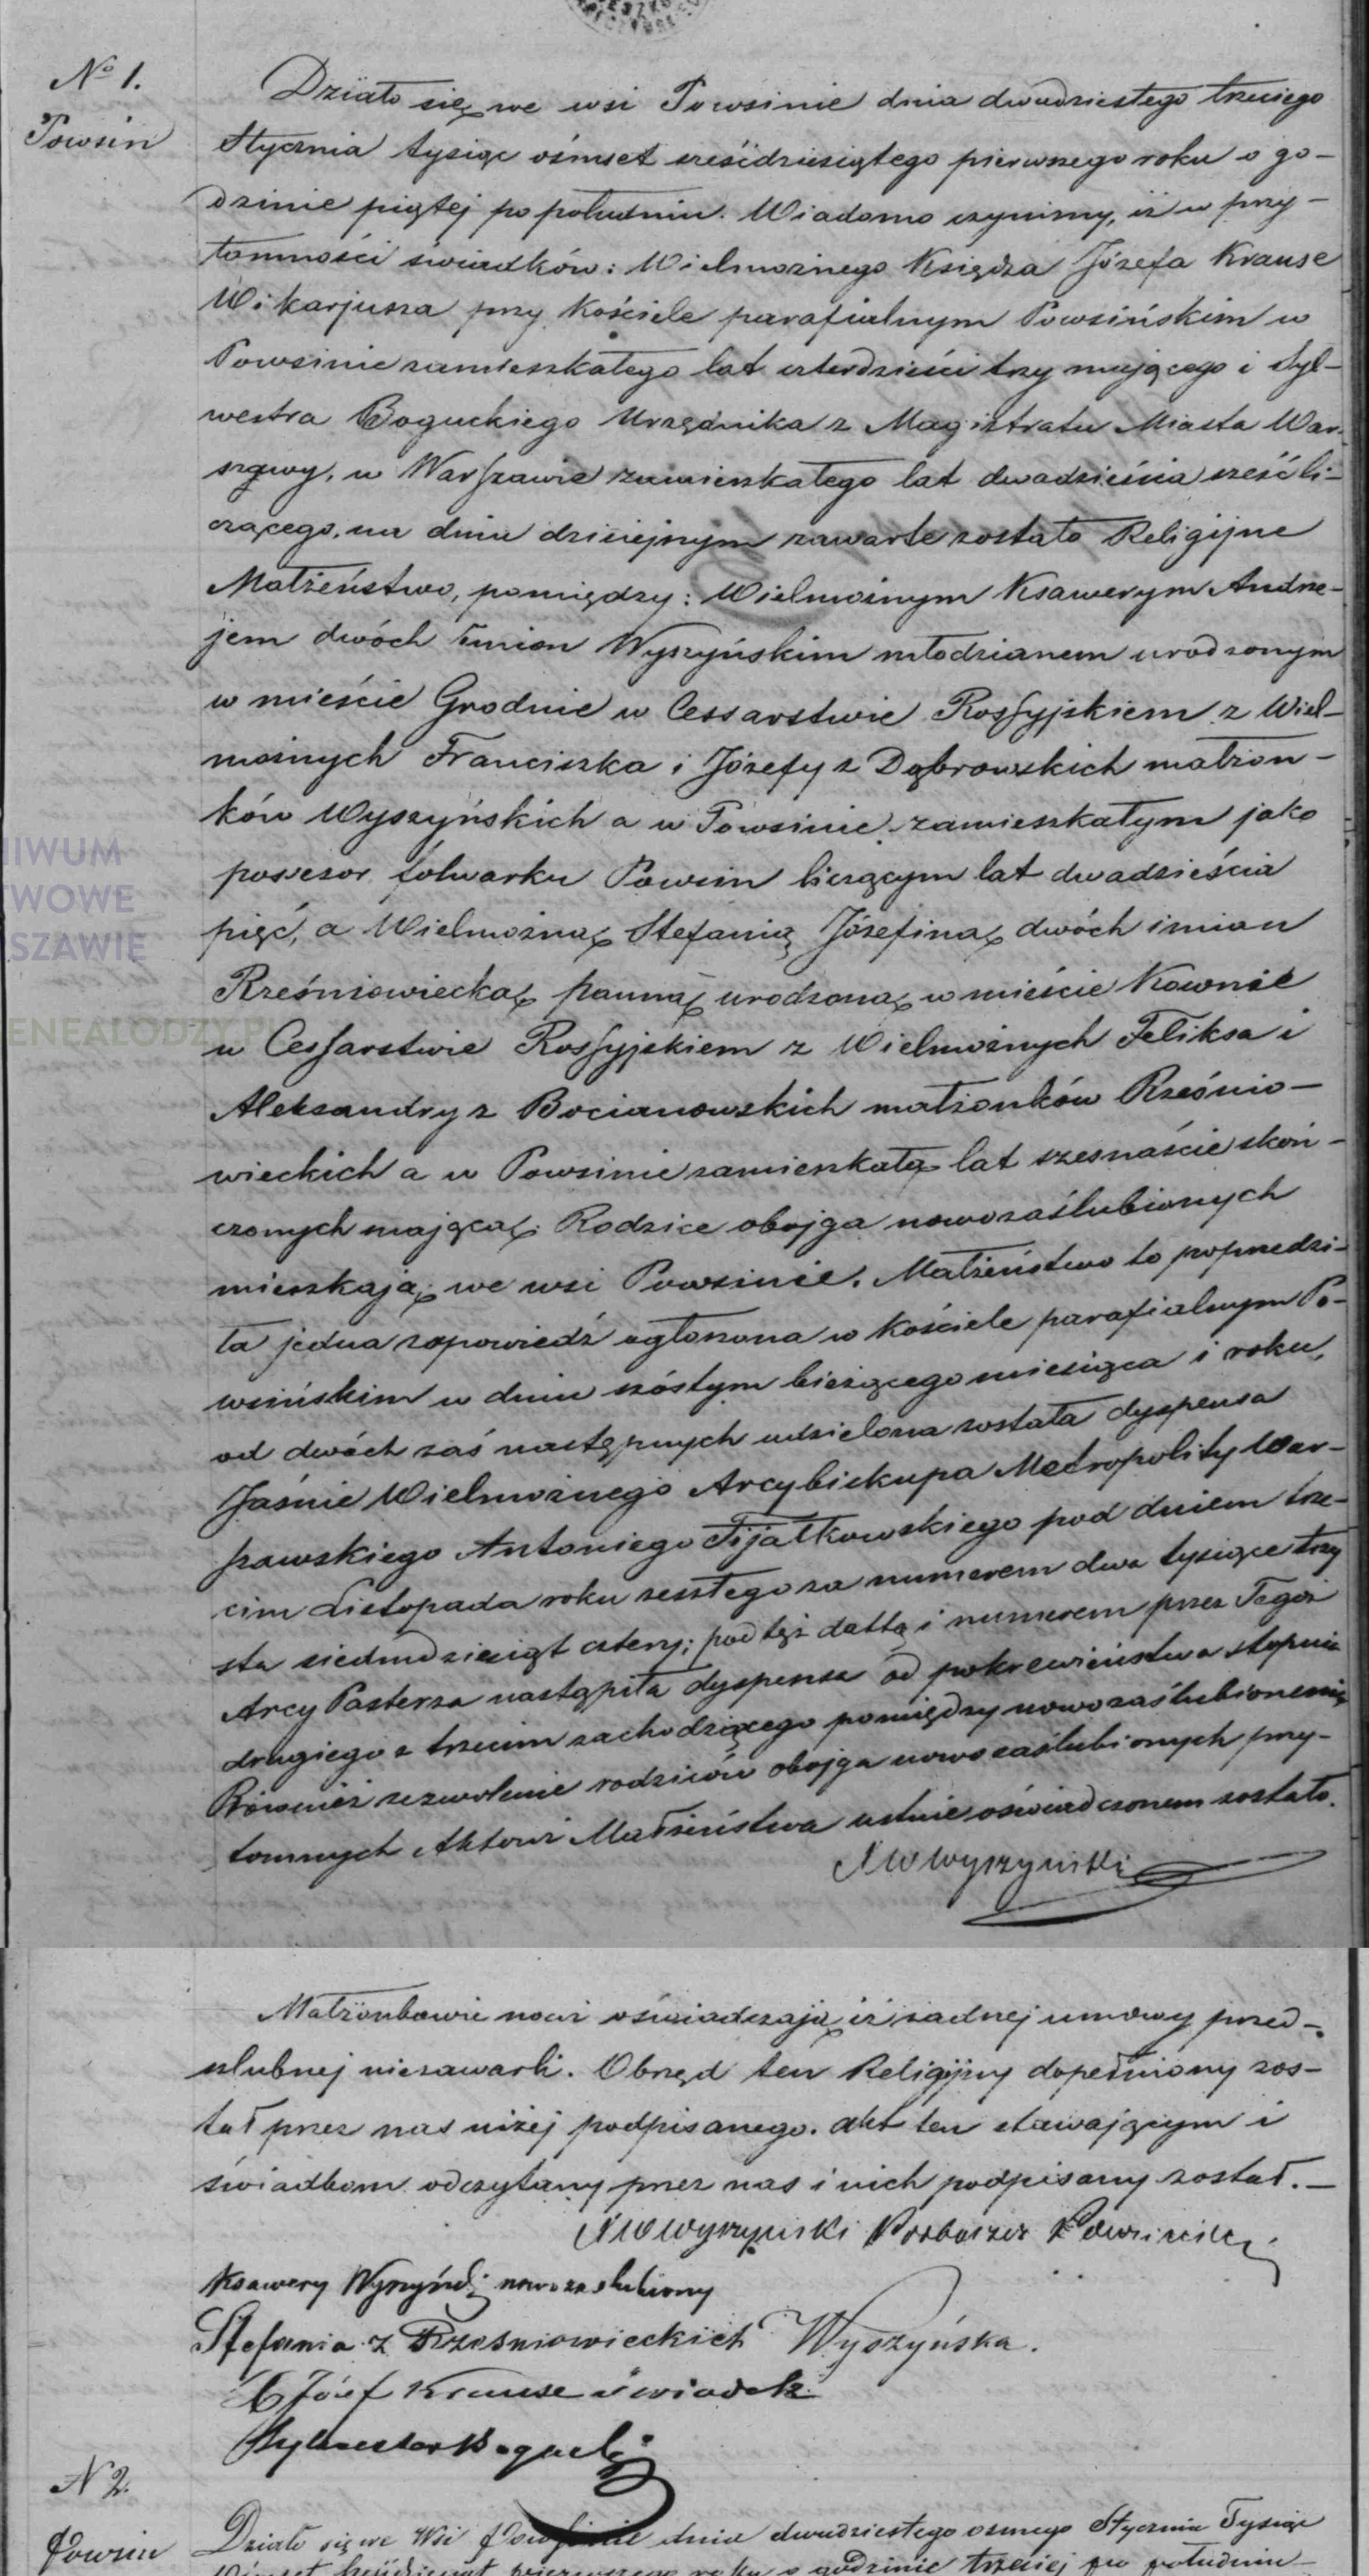 No 1.
Powsin
Działo się we wsi Powsinie dnia dwudziestego trzeciego
Stycznia tysiąc ośmset sześćdziesiątego pierwszego roku o go-
dzinie piątej po południu. Wiadomo czynimy, iż w przy-
tomności świadków: Wielmożnego Księdza Józefa Krause
Wikarjusza przy Kościele parafialnym Powsińskim w
Powsinie zamieszkałego lat czterdzieści trzy mającego i Syl-
westra Boguckiego Urzędnika z Magistratu Miasta War-
szawy, w Warszawie zamieszkałego lat dwadzieścia sześć li-
czącego, na dniu dzisiejszym zawarte zostało Religijne
Małżeństwo, pomiędzy: Wielmożnym Ksawerym Andrze-
jem dwóch imion Wyszyńskim młodzianem urodzonym
w mieście Grodnie w Cessarstwie Rossyjskiem z Wiel-
możnych Franciszka i Józefy z Dąbrowskich małżon-
ków Wyszyńskich a w Powsinie zamieszkałym jako
possesor folwarku Powsin liczącym lat dwadzieścia
pięć, a Wielmożną Stefanią Józefiną dwóch imion
Rześniowiecką panną urodzoną w mieście Kownie
w Cessarstwie Rossyjskiem z Wielmożnych Feliksa i
Aleksandry z Bocianowskich małżonków Rześnio-
wieckich a w Powsinie zamieszkałą lat szesnaście skoń-
czonych mającą. Rodzice obojga nowozaślubionych
mieszkają we wsi Powsinie. Małżeństwo to poprzedzi-
ła jedna zapowiedź ogłoszona w Kościele parafialnym Po-
wsińskim w dniu szóstym bieżącego miesiąca i roku,
od dwóch zaś następnych udzielona została dyspensa
Jaśnie Wielmożnego Arcybiskupa Metropolity War-
szawskiego Antoniego Fijałkowskiego pod dniem trze-
cim Listopada roku zeszłego za numerem dwa tysiące trzy
sta siedmdziesiąt cztery; pod tęż dattą i numerem przez Tegoż
Arcy Pasterza nastąpiła dyspensa od pokrewieństwa stopnia
drugiego z trzecim zachodzącego pomiędzy nowozaślubionemi
Również zezwolenie rodziców obojga nowozaślubionych przy-
tomnych Aktowi Małżeństwa ustnie oświadczonem zostało.
XWWyszyński
Małżonkowie nowi oświadczają iż żadnej umowy przed-
ślubnej niezawarli. Obrzęd ten Religijny dopełniony zos-
tał przez nas niżej podpisanego. Akt ten stawającym i
świadkom odczytany przez nas i nich podpisany został.—
XWWyszyński Proboszcz Powsiński
Ksawery Wyszyński nowozaslubiony
Stefania z Rzesniowieckich Wyszyńska.
X Józef Krause świadek
Sylwester Bogucki
N 2.
Powsin
Działo się we Wsi Powsinie dnia dwudziestego osmego Stycznia Tysiąc
Ośmset sześćdziesiąt pierwszego roku o godzinie trzeciej po południu